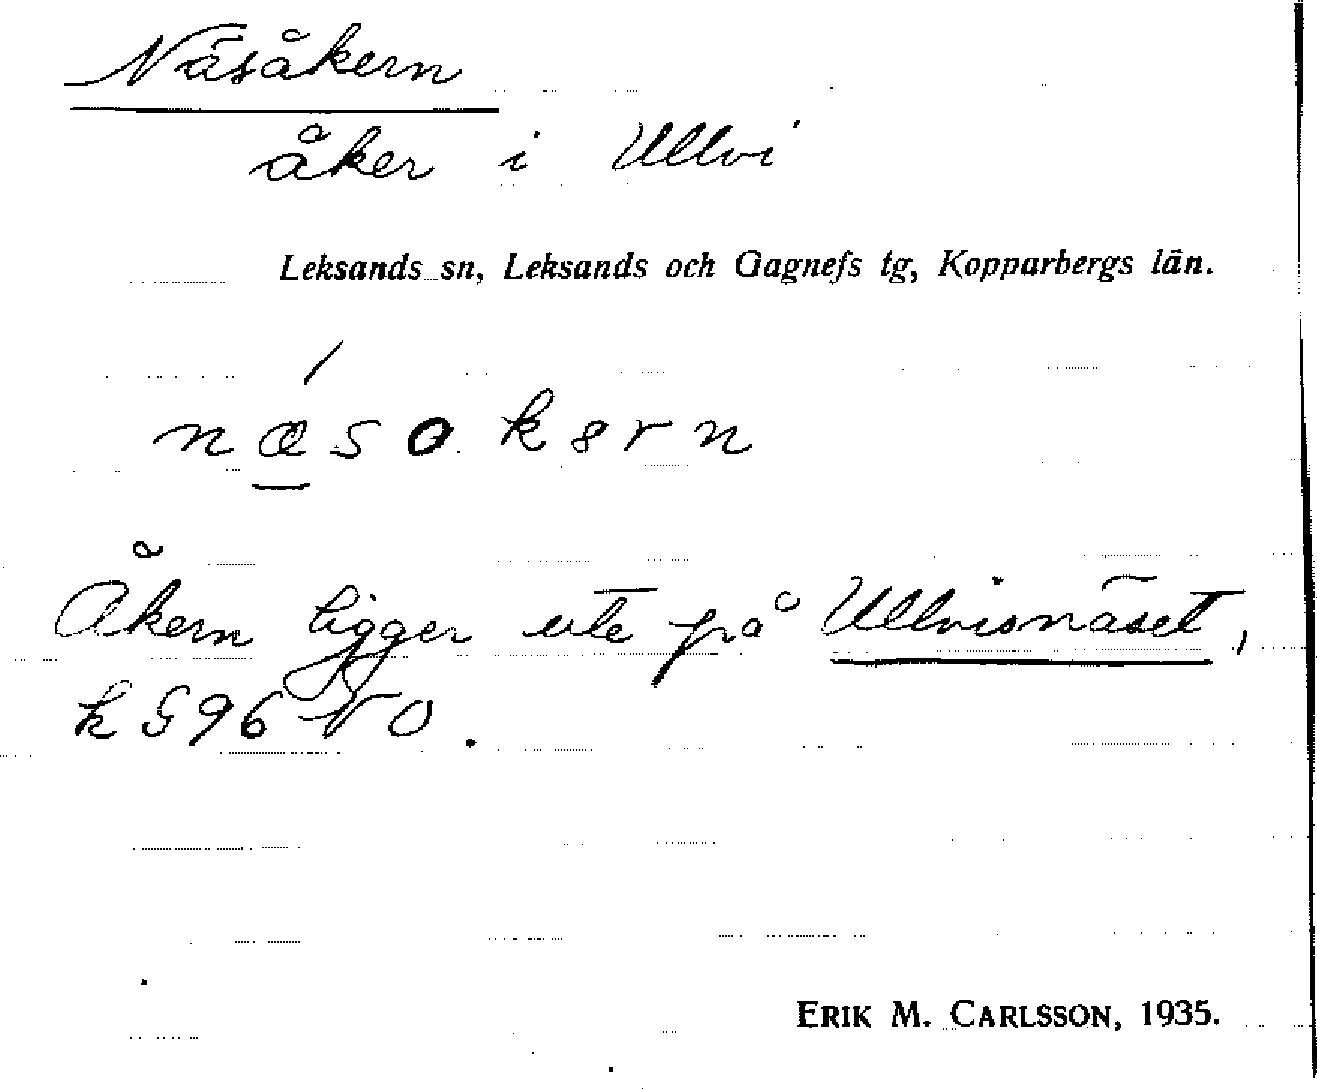 Näsåkern
åker i Ullvi
Leksands sn, Leksands och Gagnefs tg, Kopparbergs län.
Åkern ligger ute på Ullvisnäset,
k S 96 NO.
ERIK M. CARLSSON, 1935.